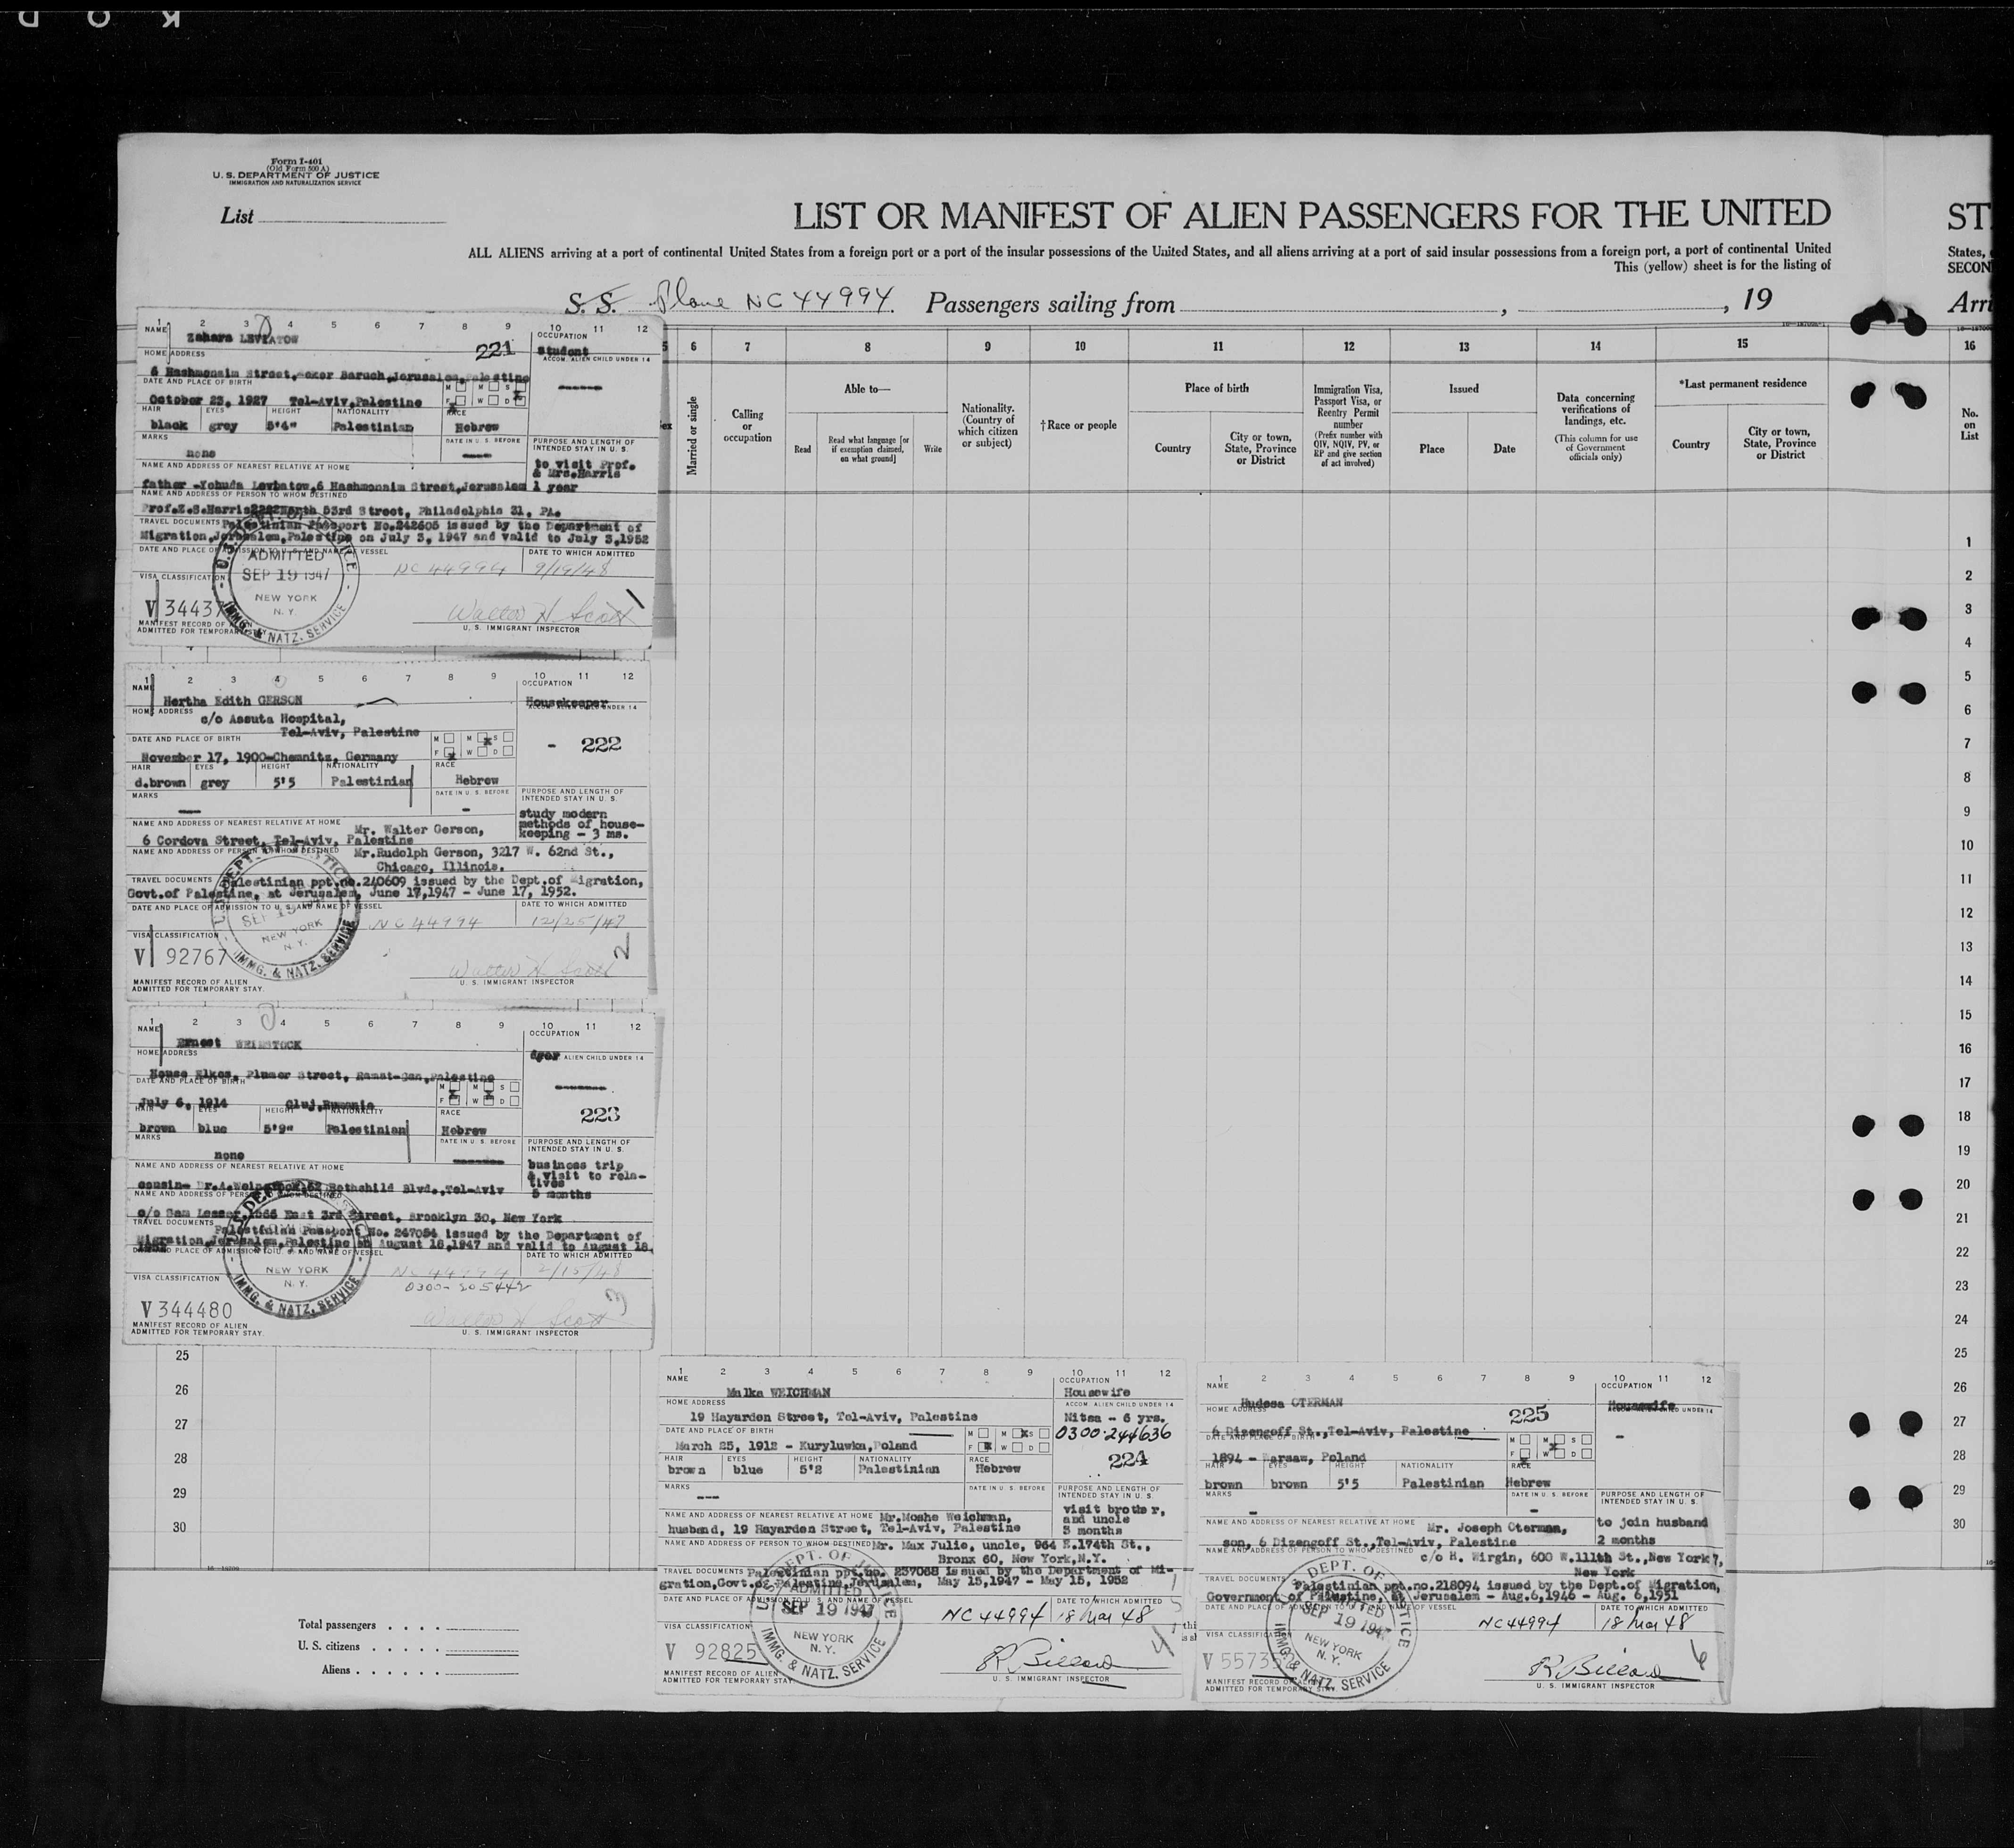 KOD
Form I-401
(Old Form 500 A)
U. S. DEPARTMENT OF JUSTICE
IMMIGRATION AND NATURALIZATION SERVICE
List
LIST OR MANIFEST OF ALIEN PASSENGERS FOR THE UNITED
ST
ALL ALIENS arriving at a port of continental United States from a foreign port or a port of the insular possessions of the United States, and all aliens arriving at a port of said insular possessions from a foreign port, a port of continental United
States,
This (yellow) sheet is for the listing of
SECON
S. S. Plane NC 44994 Passengers sailing from , , 19
Arri
6 7 8 9 10 11 12 13 14 15 16
Married or single
Calling or occupation
Able to—
Read
Read what language [or if exemption claimed, on what ground]
Write
Nationality. (Country of which citizen or subject)
†Race or people
Place of birth
Country
City or town, State, Province or District
Immigration Visa, Passport Visa, or Reentry Permit number
(Prefix number with QIV, NQIV, PV, or RP and give section of act involved)
Issued
Place
Date
Data concerning verifications of landings, etc.
(This column for use of Government officials only)
*Last permanent residence
Country
City or town, State, Province or District
No. on List
1 2 3 4 5 6 7 8 9 10 11 12
NAME
Zahara LEVIATOW
221
OCCUPATION
student
HOME ADDRESS
ACCOM. ALIEN CHILD UNDER 14
6 Hashmonaim Street, Mekor Baruch, Jerusalem, Palestine
DATE AND PLACE OF BIRTH
October 23, 1927 Tel-Aviv, Palestine
M M S
F W D
HAIR EYES HEIGHT NATIONALITY RACE
black grey 5'4" Palestinian Hebrew
MARKS
none
DATE IN U. S. BEFORE
PURPOSE AND LENGTH OF INTENDED STAY IN U. S.
to visit Prof. & Mrs. Harris
1 year
NAME AND ADDRESS OF NEAREST RELATIVE AT HOME
father -Yehuda Leviatow, 6 Hashmonaim Street, Jerusalem
NAME AND ADDRESS OF PERSON TO WHOM DESTINED
Prof. Z.S. Harris 2222 North 53rd Street, Philadelphia 31, PA.
TRAVEL DOCUMENTS
Palestinian Passport No. 242605 issued by the Department of
Migration, Jerusalem, Palestine on July 3, 1947 and valid to July 3, 1952
DATE AND PLACE OF ADMISSION TO U. S. AND NAME OF VESSEL
DATE TO WHICH ADMITTED
ADMITTED
SEP 19 1947
NEW YORK
N. Y.
IMMG. & NATZ. SERVICE
NC 44994 9/19/48
VISA CLASSIFICATION
V 34437
Walter H. Scott
1
MANIFEST RECORD OF ALIEN
ADMITTED FOR TEMPORARY
U. S. IMMIGRANT INSPECTOR
1 2 3 4 5 6 7 8 9 10 11 12
NAME
Hertha Edith GERSON
OCCUPATION
Housekeeper
HOME ADDRESS
ACCOM. ALIEN CHILD UNDER 14
c/o Assuta Hospital,
Tel-Aviv, Palestine
- 222
DATE AND PLACE OF BIRTH
M M S
F W D
November 17, 1900-Chemnitz, Germany
HAIR EYES HEIGHT NATIONALITY RACE
d.brown grey 5'5 Palestinian Hebrew
MARKS
DATE IN U. S. BEFORE
PURPOSE AND LENGTH OF INTENDED STAY IN U. S.
study modern methods of house-keeping - 3 ms.
NAME AND ADDRESS OF NEAREST RELATIVE AT HOME
Mr. Walter Gerson,
6 Cordova Street, Tel-Aviv, Palestine
NAME AND ADDRESS OF PERSON TO WHOM DESTINED
Mr. Rudolph Gerson, 3217 W. 62nd St.,
Chicago, Illinois.
TRAVEL DOCUMENTS
Palestinian ppt.no.240609 issued by the Dept. of Migration,
Govt. of Palestine, at Jerusalem, June 17, 1947 - June 17, 1952.
DATE AND PLACE OF ADMISSION TO U. S. AND NAME OF VESSEL
DATE TO WHICH ADMITTED
NEW YORK
N. Y.
IMMG. & NATZ. SERVICE
NC 44994 12/25/47
VISA CLASSIFICATION
V 92767
Walter H. Scott
2
MANIFEST RECORD OF ALIEN
ADMITTED FOR TEMPORARY STAY.
U. S. IMMIGRANT INSPECTOR
1 2 3 4 5 6 7 8 9 10 11 12
NAME
Ernest WEINSTOCK
OCCUPATION
dyer
HOME ADDRESS
ALIEN CHILD UNDER 14
House Elkos, Plumer Street, Ramat-Gan, Palestine
DATE AND PLACE OF BIRTH
M M S
F W D
July 6, 1914 Cluj, Rumania
223
HAIR EYES HEIGHT NATIONALITY RACE
brown blue 5'9" Palestinian Hebrew
MARKS
none
DATE IN U. S. BEFORE
PURPOSE AND LENGTH OF INTENDED STAY IN U. S.
business trip & visit to relatives
5 months
NAME AND ADDRESS OF NEAREST RELATIVE AT HOME
cousin- Dr. A. Weinstock, Rothchild Blvd., Tel-Aviv
NAME AND ADDRESS OF PERSON TO WHOM DESTINED
c/o Sam Lesser, East 3rd Street, Brooklyn 30, New York
TRAVEL DOCUMENTS
Palestinian Passport No. 247054 issued by the Department of
Migration, Jerusalem, Palestine on August 18, 1947 and valid to August 18,
DATE AND PLACE OF ADMISSION TO U. S. AND NAME OF VESSEL
DATE TO WHICH ADMITTED
NEW YORK
N. Y.
IMMG. & NATZ. SERVICE
NC 44994 2/15/48
0300-
VISA CLASSIFICATION
V 344480
Walter H. Scott
3
MANIFEST RECORD OF ALIEN
ADMITTED FOR TEMPORARY STAY.
U. S. IMMIGRANT INSPECTOR
1 2 3 4 5 6 7 8 9 10 11 12
NAME
Malka WEICHMAN
OCCUPATION
Housewife
HOME ADDRESS
ACCOM. ALIEN CHILD UNDER 14
19 Hayarden Street, Tel-Aviv, Palestine
Nitsa - 6 yrs.
0300-244636
DATE AND PLACE OF BIRTH
M M S
F W D
March 25, 1912 - Kuryluwka, Poland
224
HAIR EYES HEIGHT NATIONALITY RACE
brown blue 5'2 Palestinian Hebrew
MARKS
---
DATE IN U. S. BEFORE
PURPOSE AND LENGTH OF INTENDED STAY IN U. S.
visit brother, and uncle
3 months
NAME AND ADDRESS OF NEAREST RELATIVE AT HOME
Mr. Moshe Weichman,
husband, 19 Hayarden Street, Tel-Aviv, Palestine
NAME AND ADDRESS OF PERSON TO WHOM DESTINED
Mr. Max Julie, uncle, 964 E. 174th St.,
Bronx 60, New York, N.Y.
TRAVEL DOCUMENTS
Palestinian ppt.no. 237068 issued by the Department of Mi-
gration, Govt. of Palestine, Jerusalem, May 15, 1947 - May 15, 1952
DATE AND PLACE OF ADMISSION TO U. S. AND NAME OF VESSEL
DATE TO WHICH ADMITTED
ADMITTED
SEP 19 1947
NEW YORK
N. Y.
IMMG. & NATZ. SERVICE
NC 44994 18 Mar 48
VISA CLASSIFICATION
V 92825
R Billard
MANIFEST RECORD OF ALIEN
ADMITTED FOR TEMPORARY STAY.
U. S. IMMIGRANT INSPECTOR
1 2 3 4 5 6 7 8 9 10 11 12
NAME
Hudesa OTERMAN
OCCUPATION
Housewife
HOME ADDRESS
UNDER 14
225
6 Dizengoff St., Tel-Aviv, Palestine
DATE AND PLACE OF BIRTH
M M S
F W D
1894 - Warsaw, Poland
HAIR EYES HEIGHT NATIONALITY RACE
brown brown 5'5 Palestinian Hebrew
MARKS
DATE IN U. S. BEFORE
PURPOSE AND LENGTH OF INTENDED STAY IN U. S.
to join husband
2 months
NAME AND ADDRESS OF NEAREST RELATIVE AT HOME
Mr. Joseph Oterman,
son, 6 Dizengoff St., Tel-Aviv, Palestine
NAME AND ADDRESS OF PERSON TO WHOM DESTINED
c/o H. Wirgin, 600 W. 111th St., New York 7,
New York
TRAVEL DOCUMENTS
Palestinian ppt.no.218094 issued by the Dept. of Migration,
Government of Palestine, at Jerusalem - Aug. 6, 1946 - Aug. 6, 1951
DATE AND PLACE OF ADMISSION TO U. S. AND NAME OF VESSEL
DATE TO WHICH ADMITTED
SEP 19 1947
NEW YORK
N. Y.
IMMG. & NATZ. SERVICE
NC 44994 18 Mar 48
VISA CLASSIFICATION
V 5573
R Billard
6
MANIFEST RECORD OF ALIEN
ADMITTED FOR TEMPORARY STAY.
U. S. IMMIGRANT INSPECTOR
25
26
27
28
29
30
Total passengers
U. S. citizens
Aliens
1
2
3
4
5
6
7
8
9
10
11
12
13
14
15
16
17
18
19
20
21
22
23
24
25
26
27
28
29
30